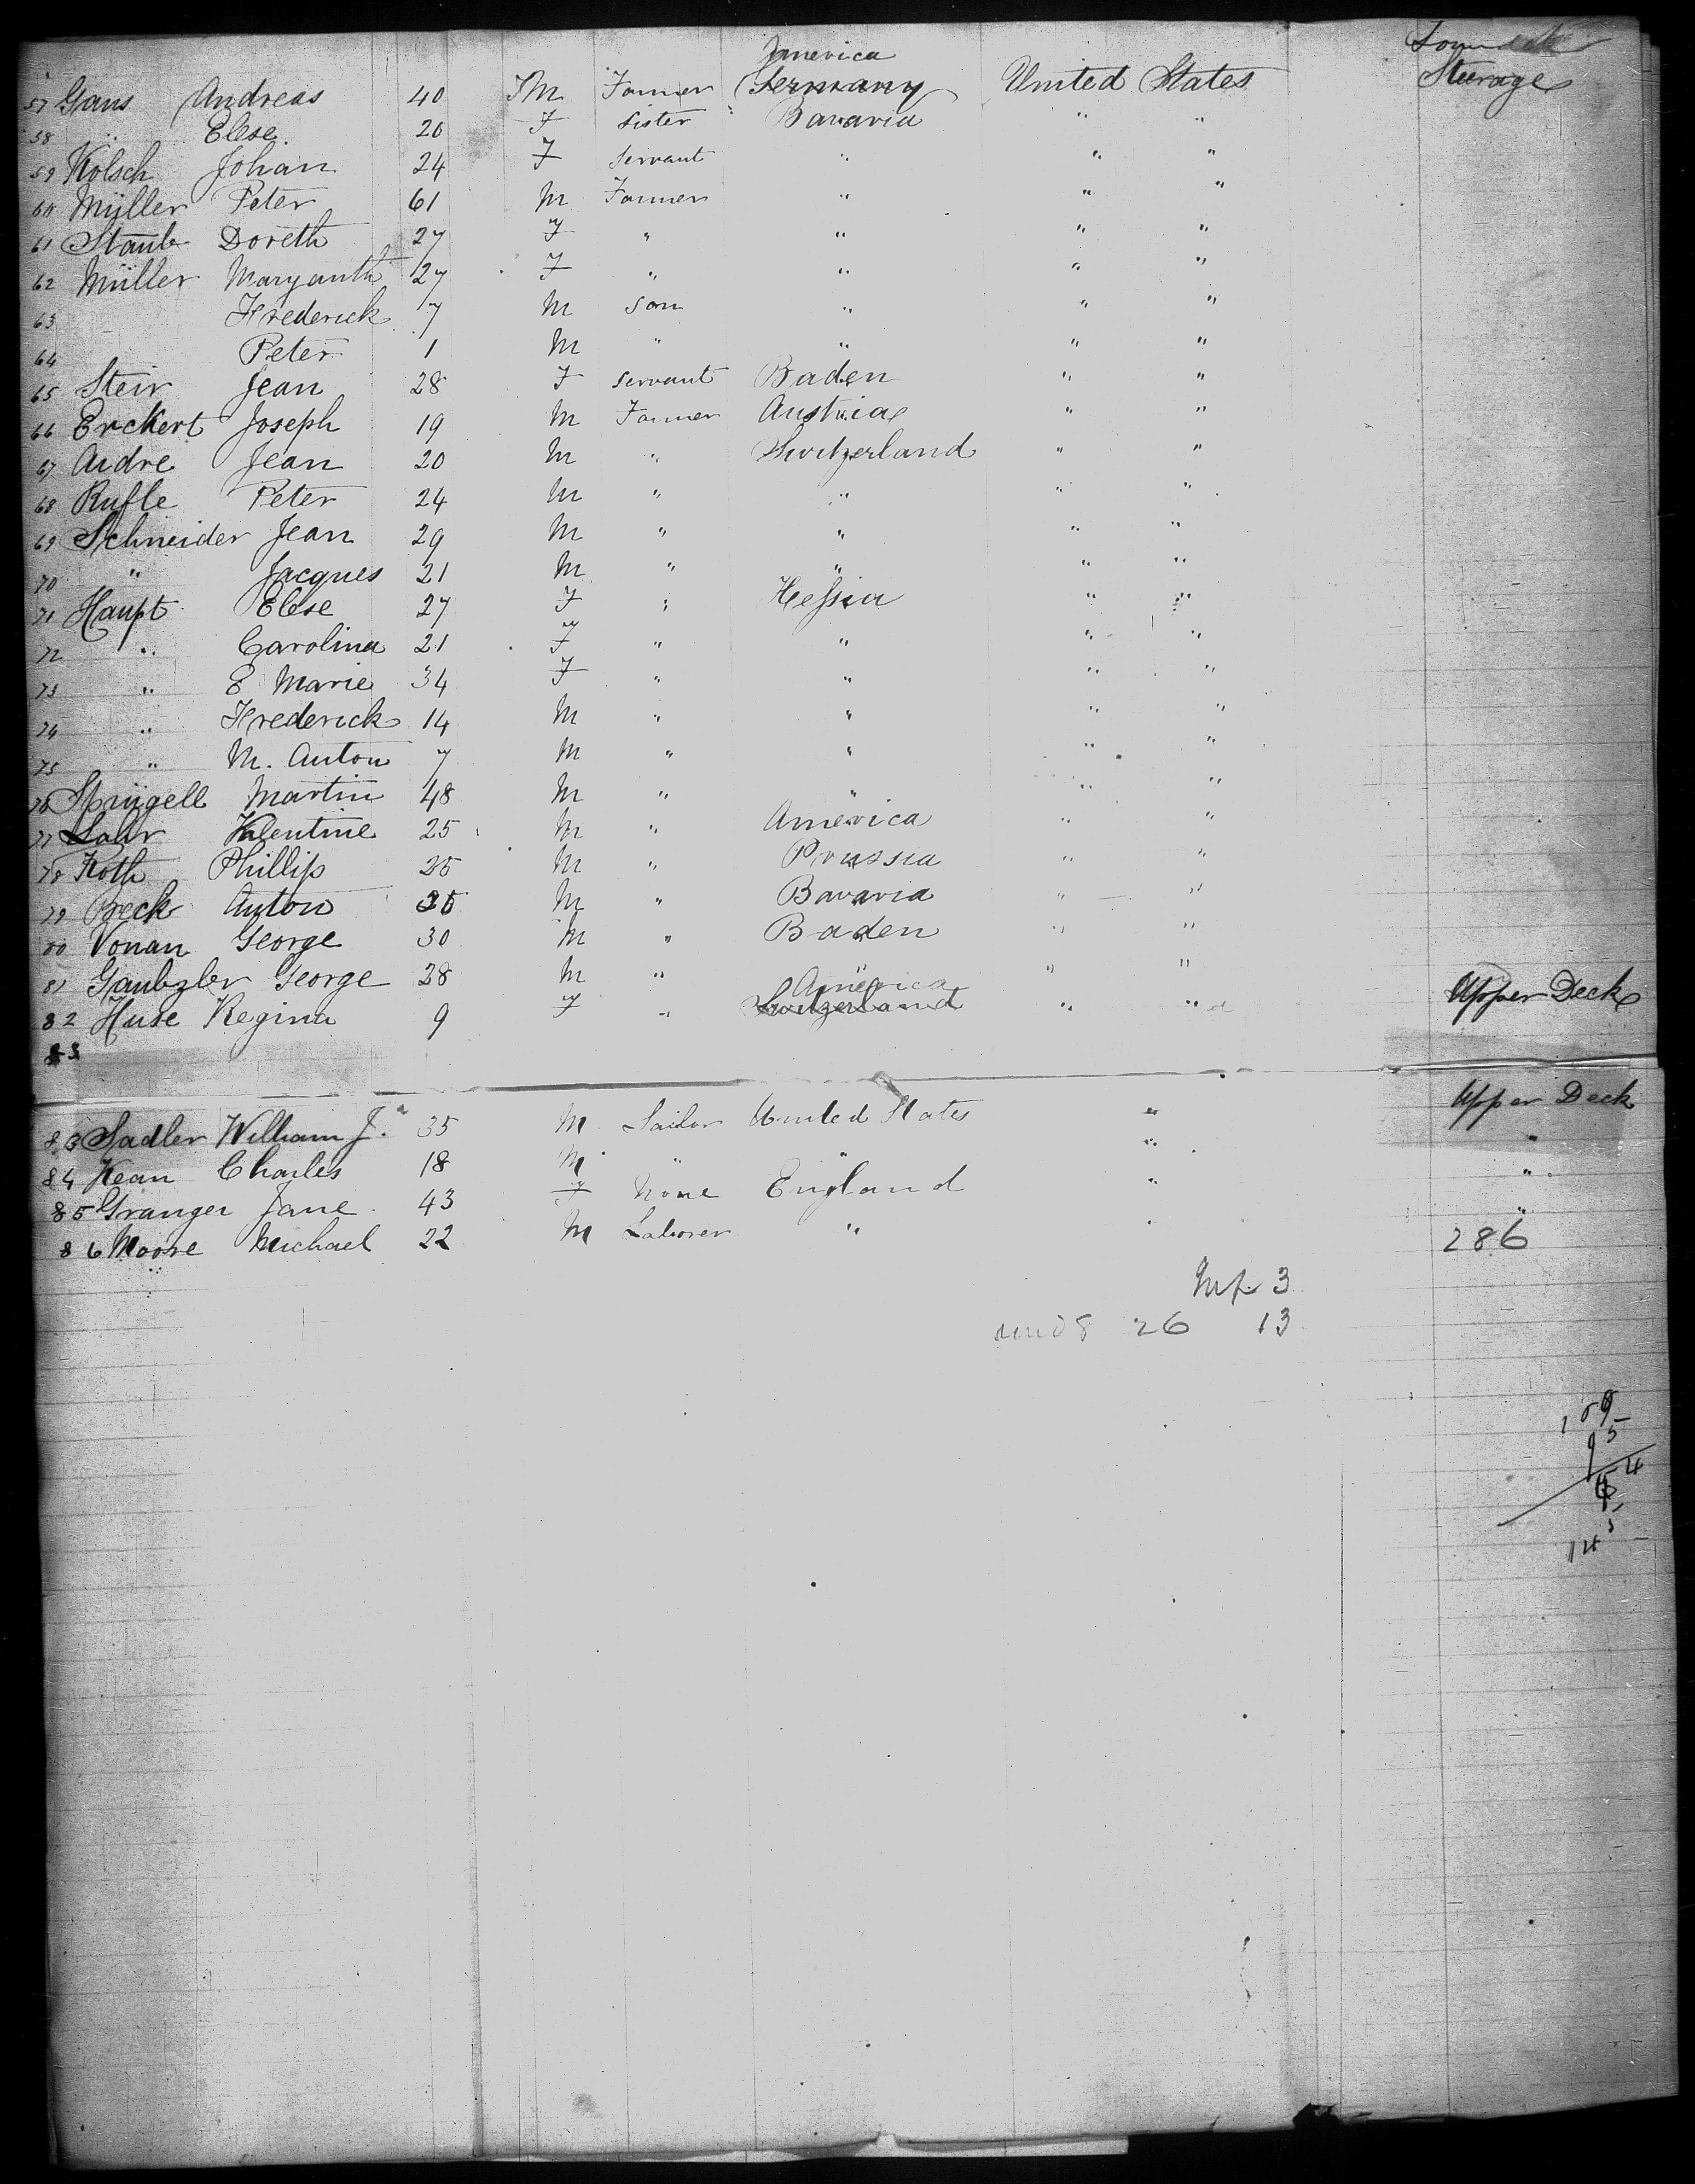 America Lowerdeck
57 Gans Andreas 40 M Farmer Germany United States Steerage
58 " Elese 20 F Sister Bavaria " "
59 Kölsch Johan 24 F Servant " " "
60 Müller Peter 61 M Farmer " " "
61 Staub Doreth 27 F " " " "
62 Müller Maryanth 27 F " " " "
63 Frederick 7 M Son " " "
64 Peter 1 M " " " "
65 Steir Jean 28 F Servant Baden " "
66 Erckert Joseph 19 M Farmer Austria " "
67 Aidre Jean 20 M " Switzerland " "
68 Rufle Peter 24 M " " " "
69 Schneider Jean 29 M " " " "
70 " Jacques 21 M " " " "
71 Haupt Elese 27 F " Hessia " "
72 " Carolina 21 F " " " "
73 " E Marie 34 F " " " "
74 " Frederick 14 M " " " "
75 " M. Anton 7 M " " " "
76 Sprügell Martin 48 M " " " "
77 Lahr Valentine 25 M " America " "
78 Roth Phillip 25 M " Prussia " "
79 Beck Anton 35 M " Bavaria " "
80 Vonan George 30 M " Baden " "
81 Gaubzler George 28 M " " " "
America
82 Huse Regina 9 F " Switzerland " " Upper Deck
83
83 Sadler William J. 35 M Sailor United States " Upper Deck
84 Kean Charles 18 M " " " "
85 Granger Jane 43 F None England " "
86 Moore Michael 22 M Laborer " " "
286
Inf. 3
und 8 26 13
109
95
14